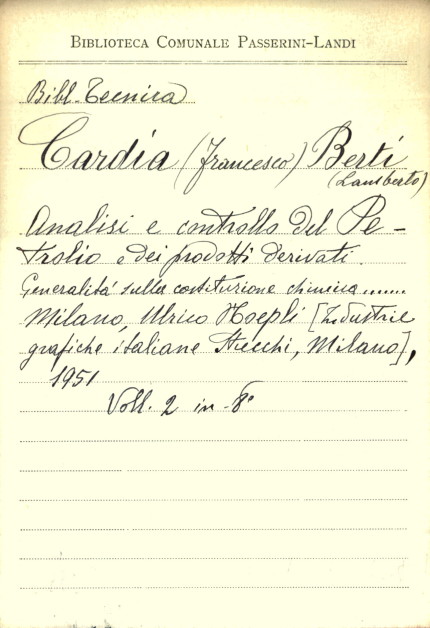 BIBLIOTECA COMUNALE PASSERINI-LANDI
Bibl. Tecnica
Cardia (Francesco) Berti
(Lamberto)
Analisi e controllo del Pe-
trolio e dei prodotti derivati.
Generalità sulla costituzione chimica......
Milano, Ulrico Hoepli [Industrie
grafiche italiane Stucchi, Milano],
1951
Voll. 2 in-8°